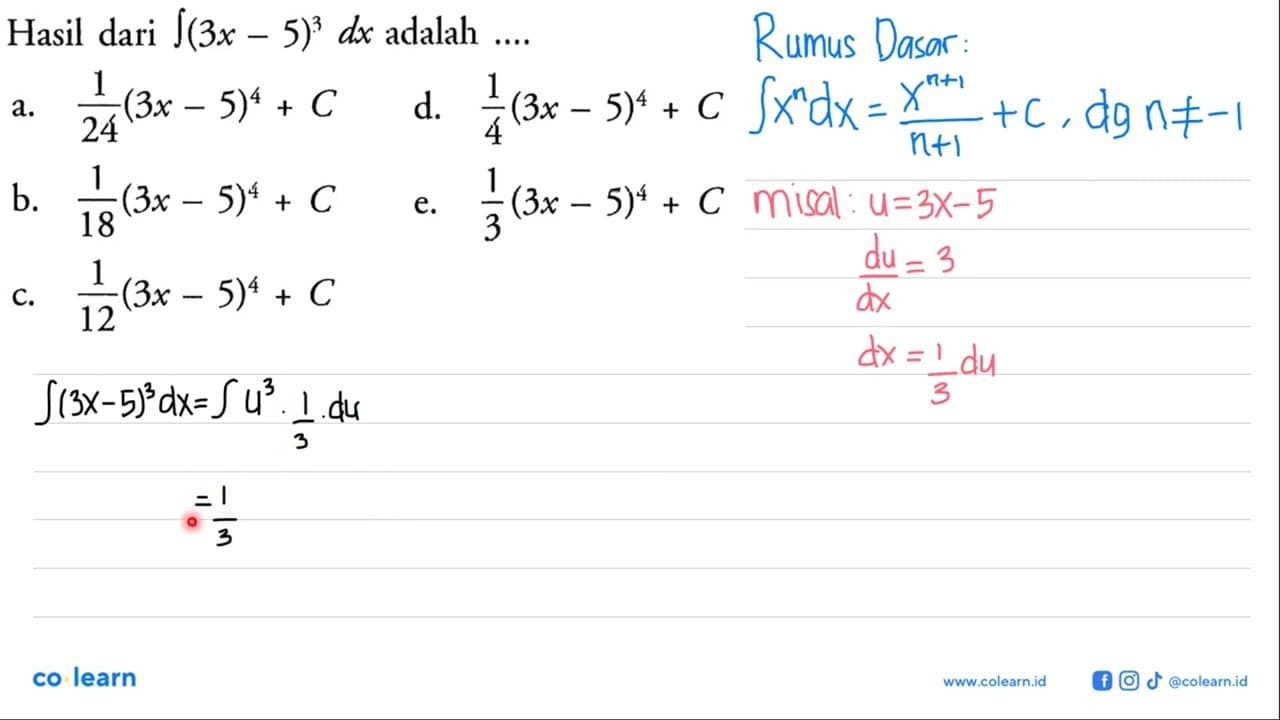 Hasil dari ∫(3x – 5)³ dx adalah ....
a. 1/24 (3x – 5)⁴ + C
b. 1/18 (3x – 5)⁴ + C
c. 1/12 (3x – 5)⁴ + C
d. 1/4 (3x – 5)⁴ + C
e. 1/3 (3x – 5)⁴ + C
Rumus Dasar:
∫xⁿdx = xⁿ⁺¹/n+1 + C, dg n ≠ -1
misal: u = 3x – 5
du/dx = 3
dx = 1/3 du
∫(3x-5)³dx = ∫u³ . 1/3 . du
= 1/3
co learn
www.colearn.id
@colearn.id